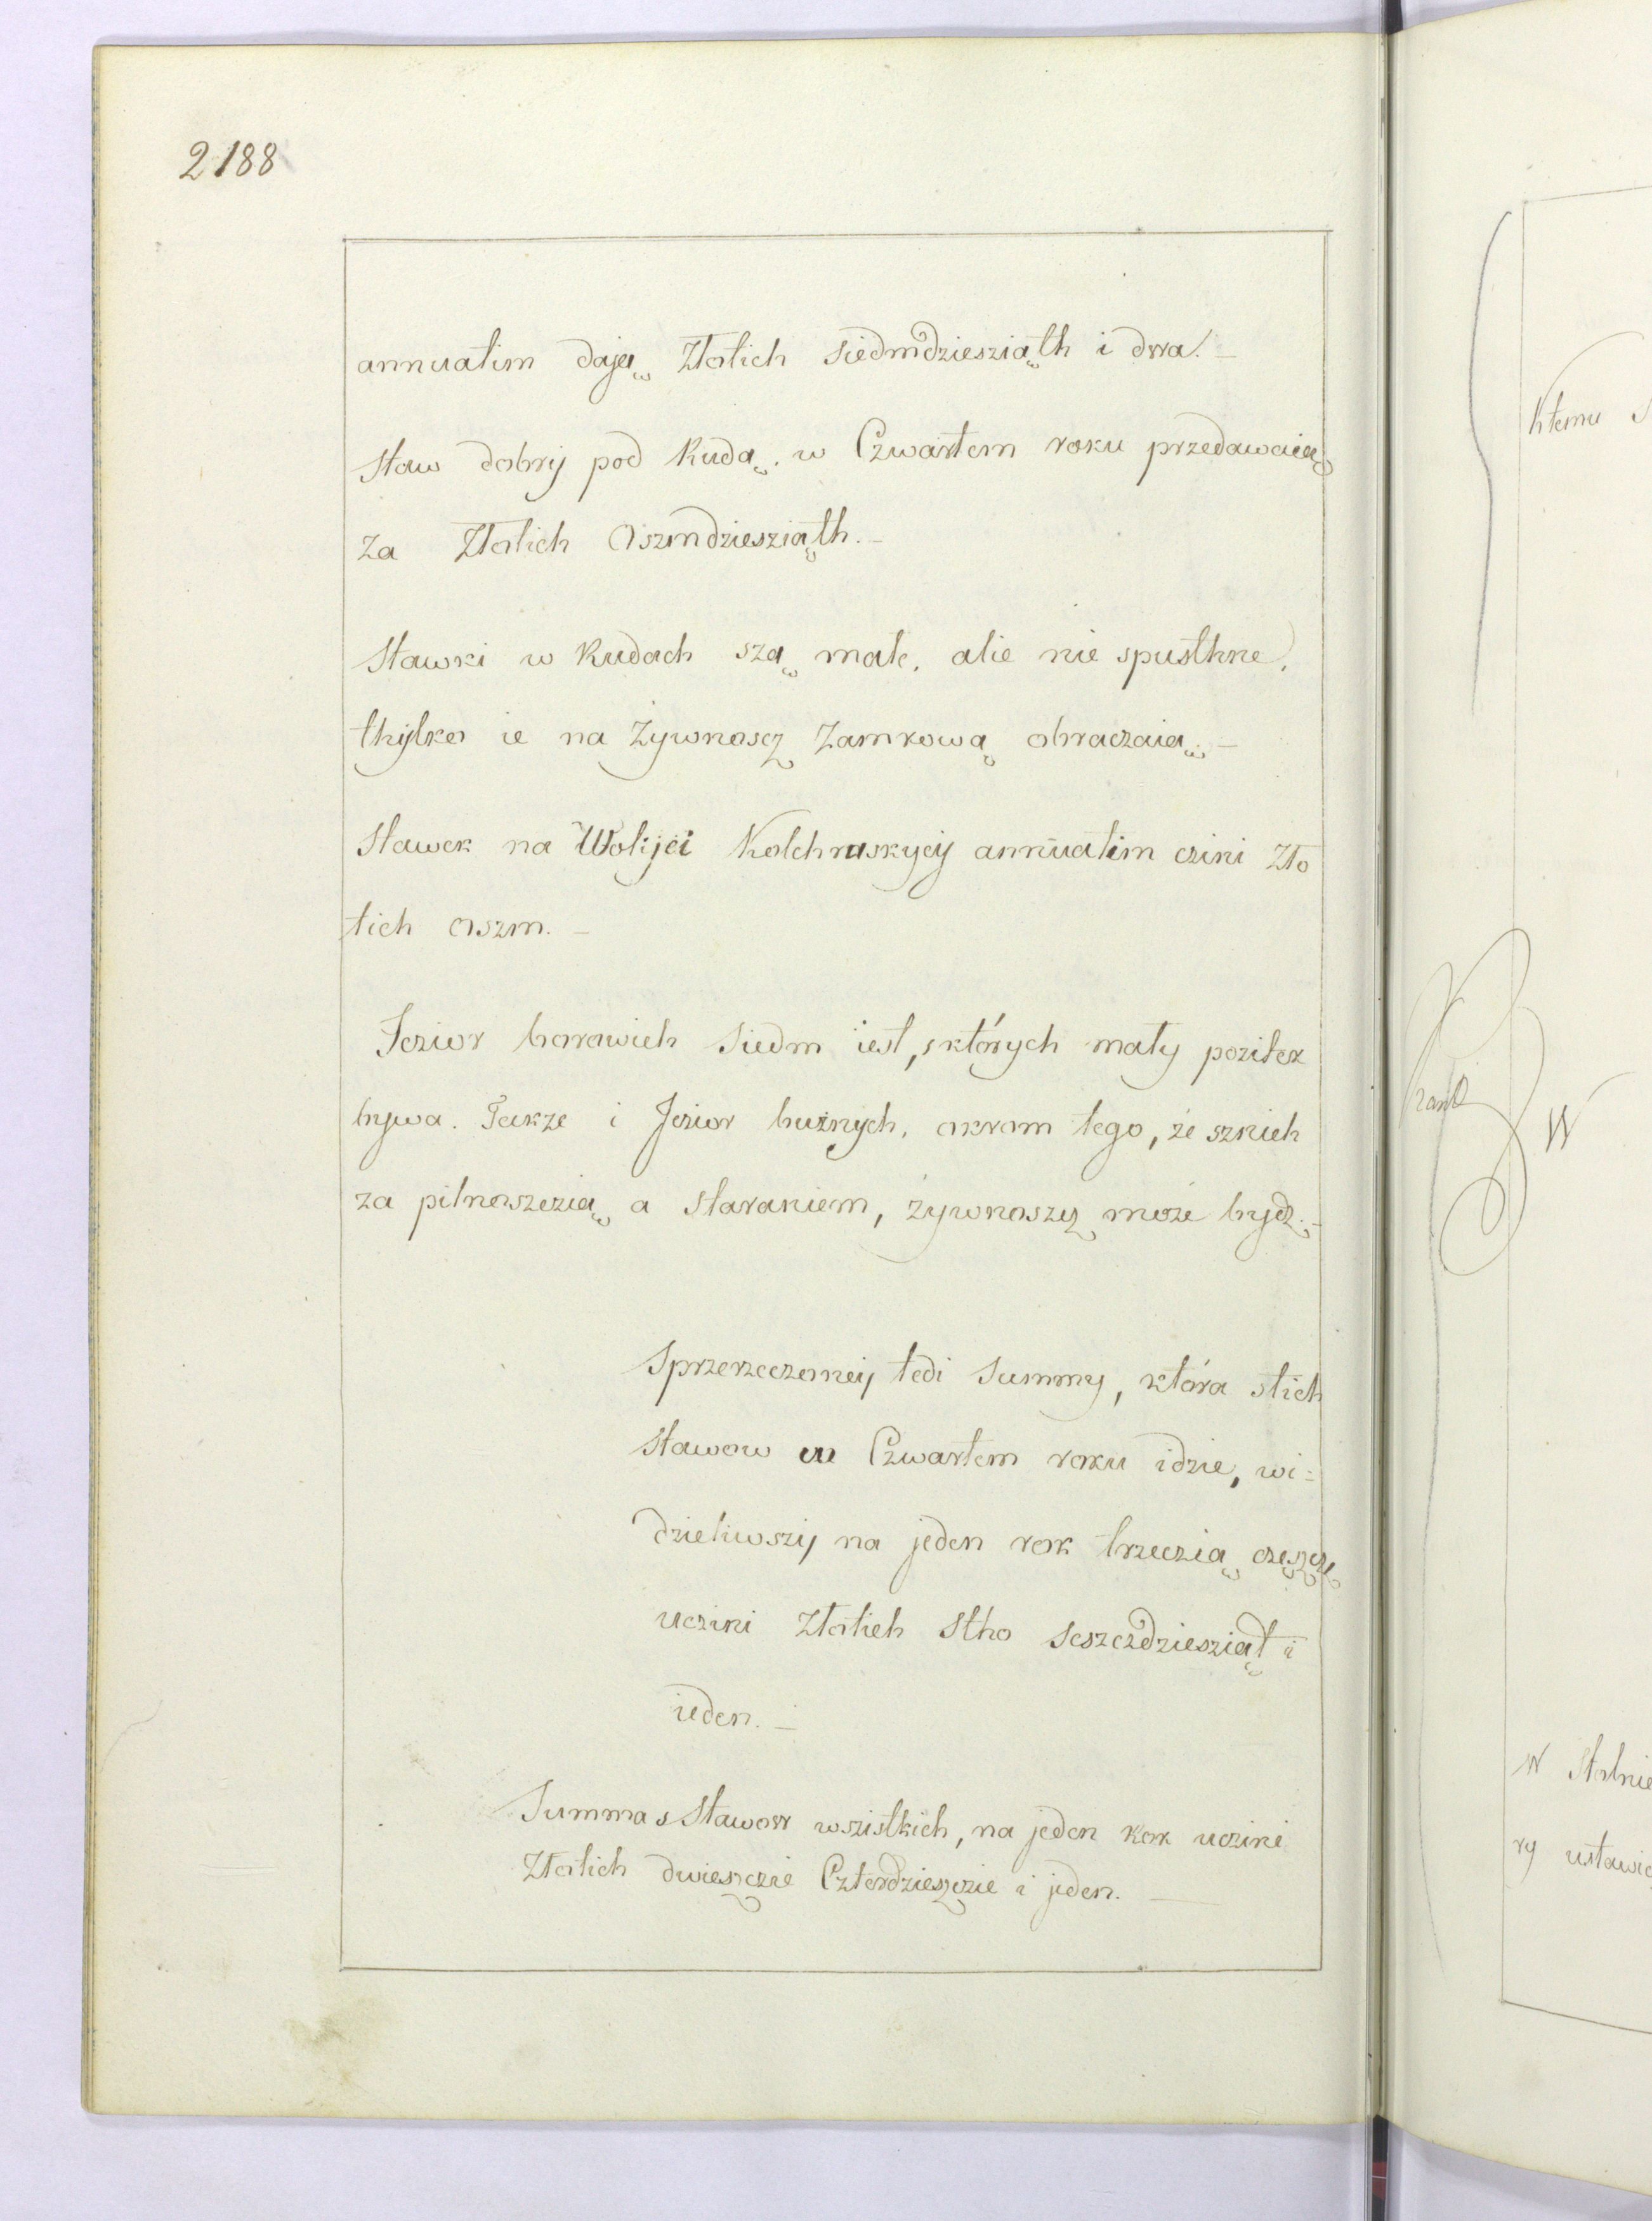 2188
annuatim dają Złotich siedmdziesziąth i dwa.—
Staw dobry pod Rudą. w Czwartem roku przedawaią
za Złotich Oszmdziesziąth.—
Stawki w Rudach szą małe. alie nie spusthne,
thylko ie na Żywnoscz Zamkową obraczaią.—
Stawek na Woli jei annuatim czini Zło
tich oszm.—
Jezior borowich Siedm iest, s których mały pozitek
bywa. Takze i Jezior bużnych. okrom tego, że sznich
za pilnoszczią a staraniem, żywnoszcz może bydz.—
Sprzerzeczonej tedi Summy, która stich
stawow w Czwartem roku idzie, wi=
dzieliwszy na jeden rok trzeczią częszcz
uczini Złotich Stho Seszczdziesziąt i
ieden.—
Summa s Stawow wszistkich, na jeden Rok uczini
Złotich dwieszczie Czterdzieszczie i jeden.—
ktemu
W
W Stobnie
ry ustawic